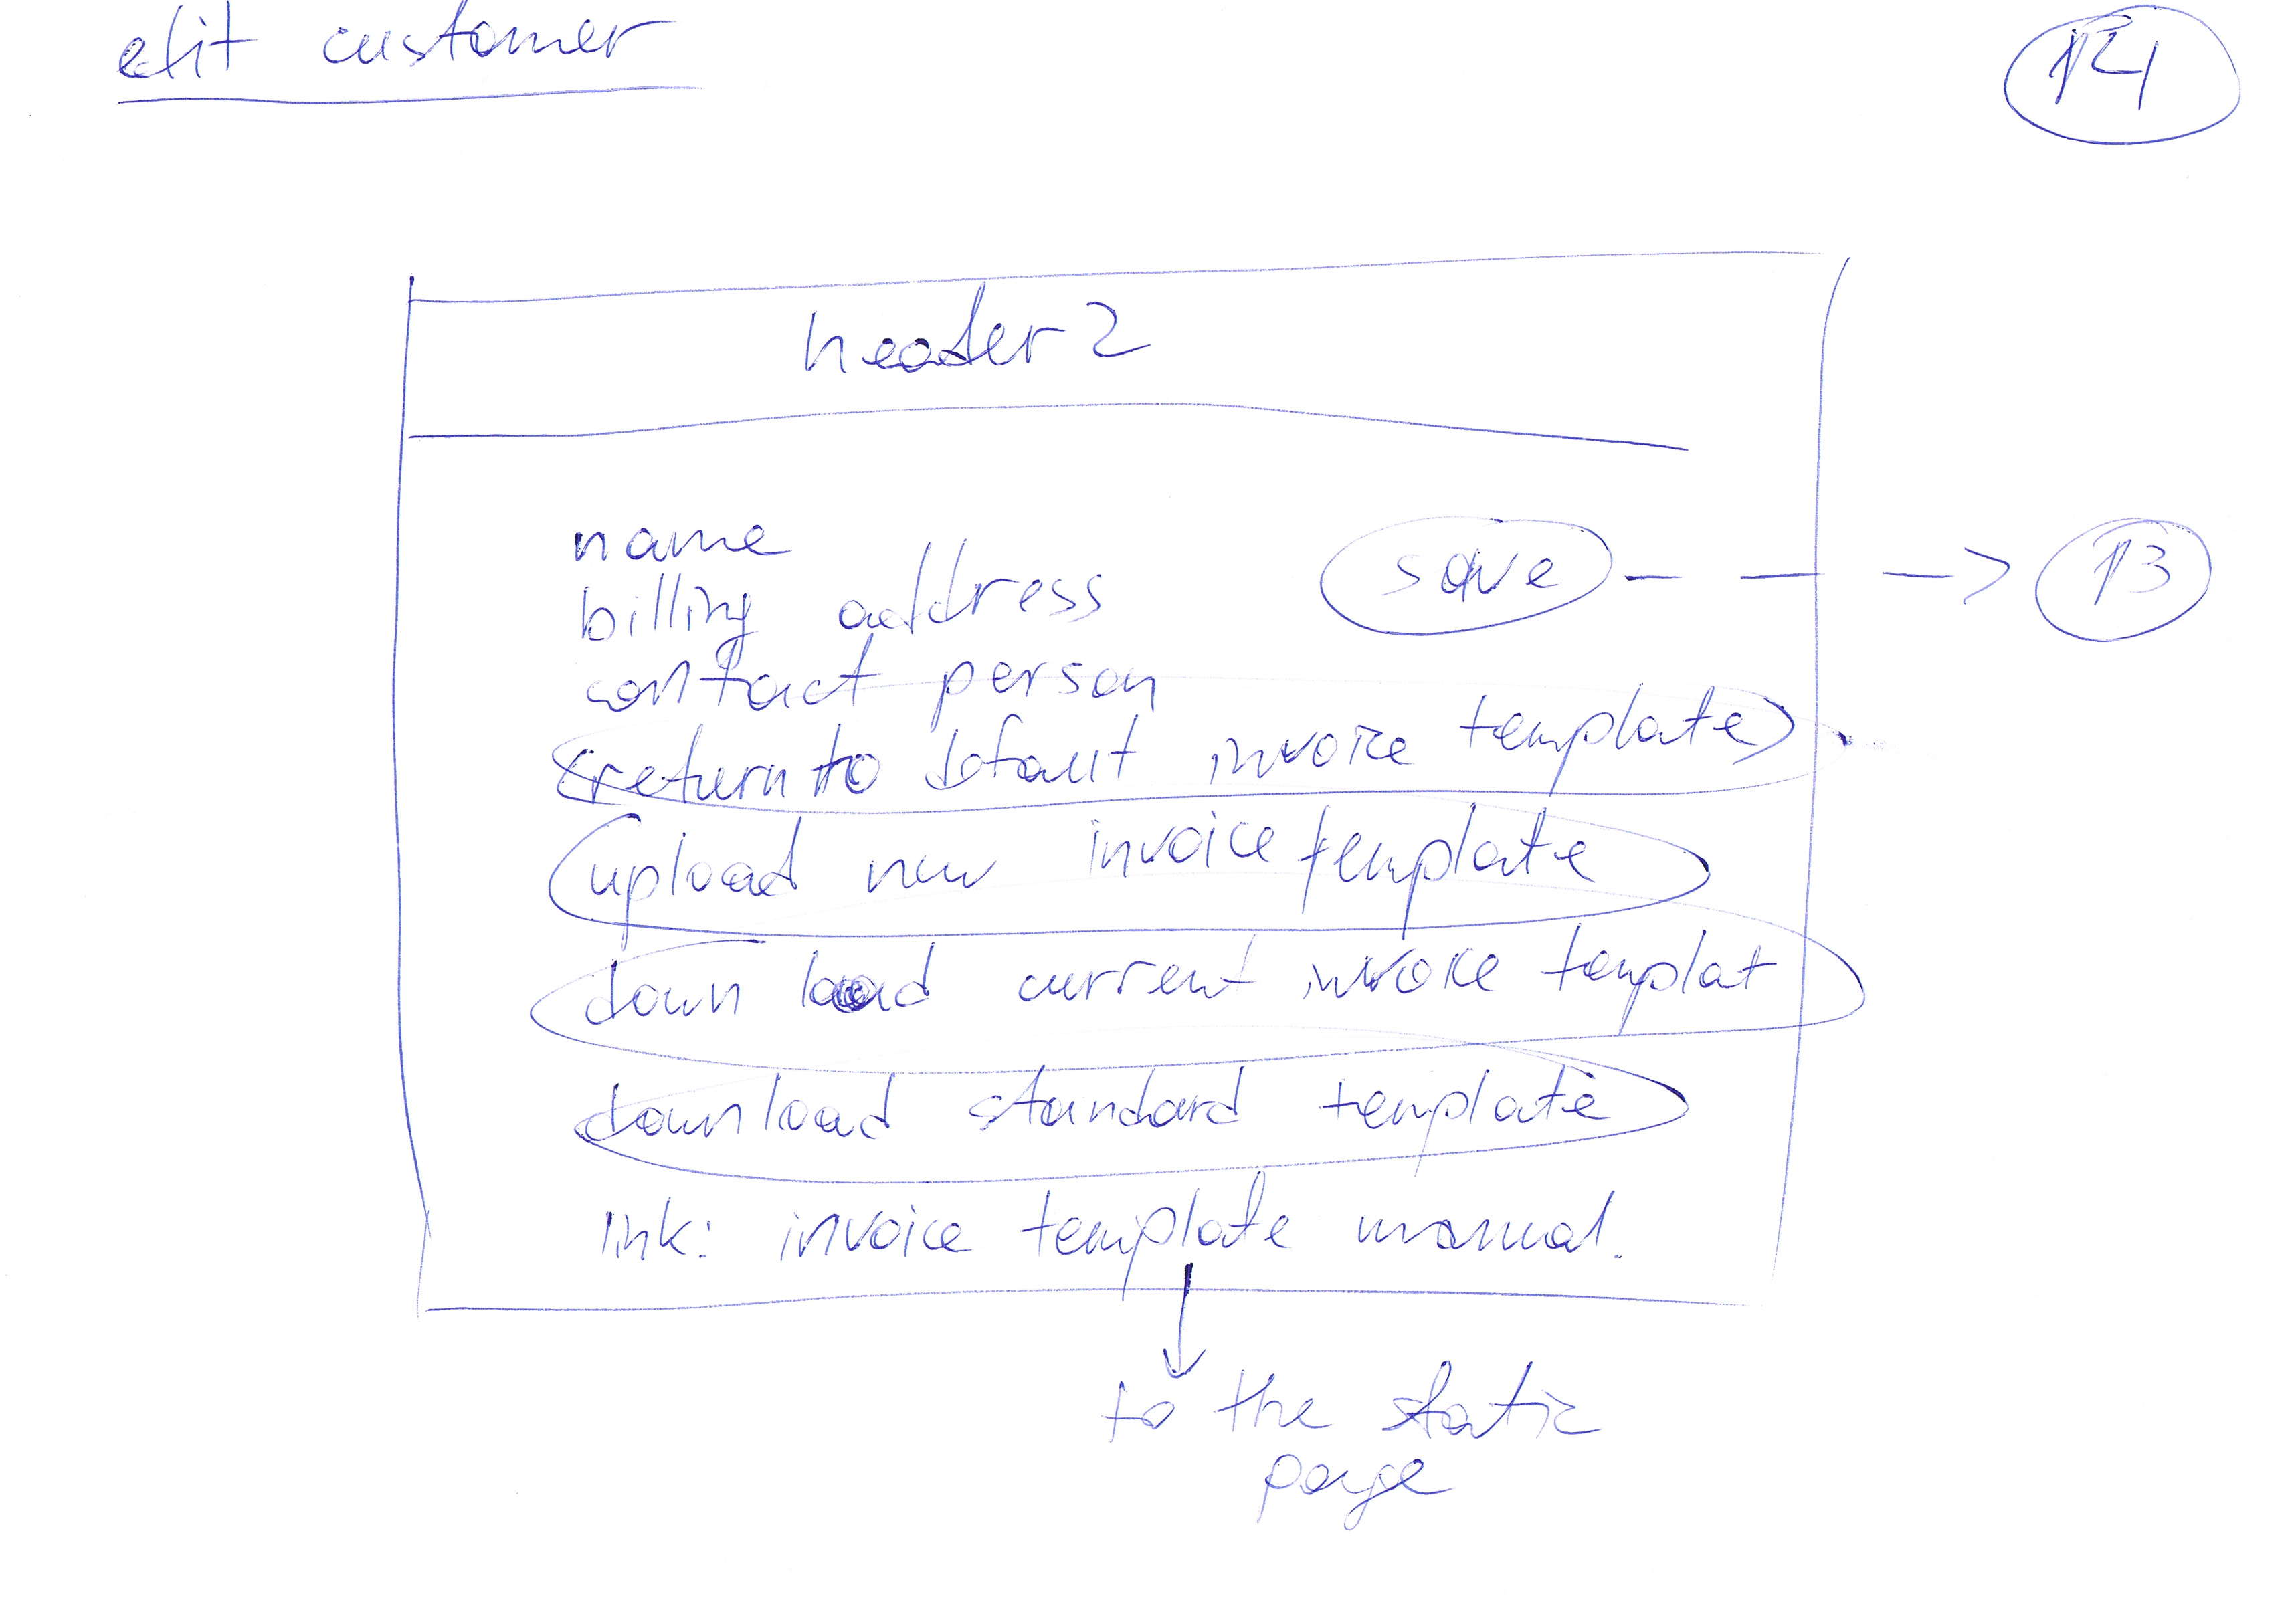 edit customer
14
header 2
name
save
13
billing address
contact person
return to default invoice template
upload new invoice template
down load current invoice templat
download standard template
link: invoice template manual.
to the static
page